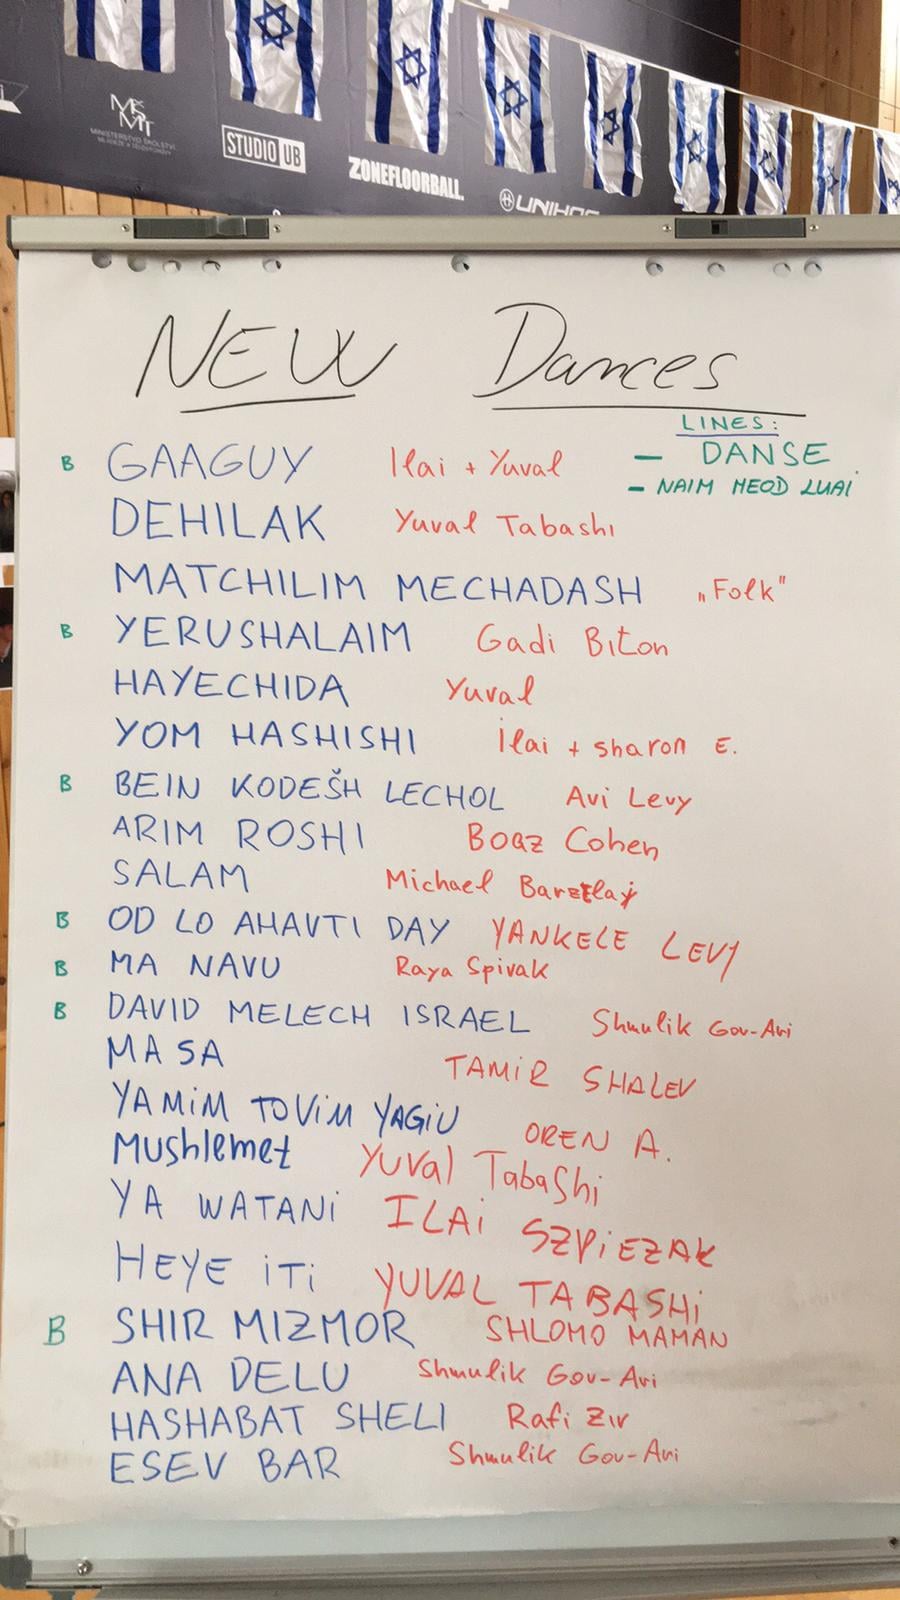 MŠMT
MINISTERSTVO ŠKOLSTVÍ
MLÁDEŽE A TĚLOVÝCHOVY
STUDIO UB
ZONEFLOORBALL.
UNIHOC
NEW Dances
LINES:
– DANSE
– NAIM MEOD LUAI
B GAAGUY Ilai + Yuval
DEHILAK Yuval Tabashi
MATCHILIM MECHADASH „Folk"
B YERUSHALAIM Gadi Biton
HAYECHIDA Yuval
YOM HASHISHI Ilai + sharon E.
B BEIN KODEŠH LECHOL Avi Levy
ARIM ROSHI Boaz Cohen
SALAM Michael Barzelay
B OD LO AHAVTI DAY YANKELE LEVY
B MA NAVU Raya Spivak
B DAVID MELECH ISRAEL Shmulik Gov-Ari
MASA TAMIR SHALEV
YAMiM TOViM YAGiU OREN A.
Mushlemet YUVal TabaShi
YA WATANi ILAi SZPiEZAK
HEYE iTi YUVAL TABASHi
B SHIR MIZMOR SHLOMO MAMAN
ANA DELU Shmulik Gov-Ari
HASHABAT SHELI Rafi Ziv
ESEV BAR Shmulik Gov-Ari